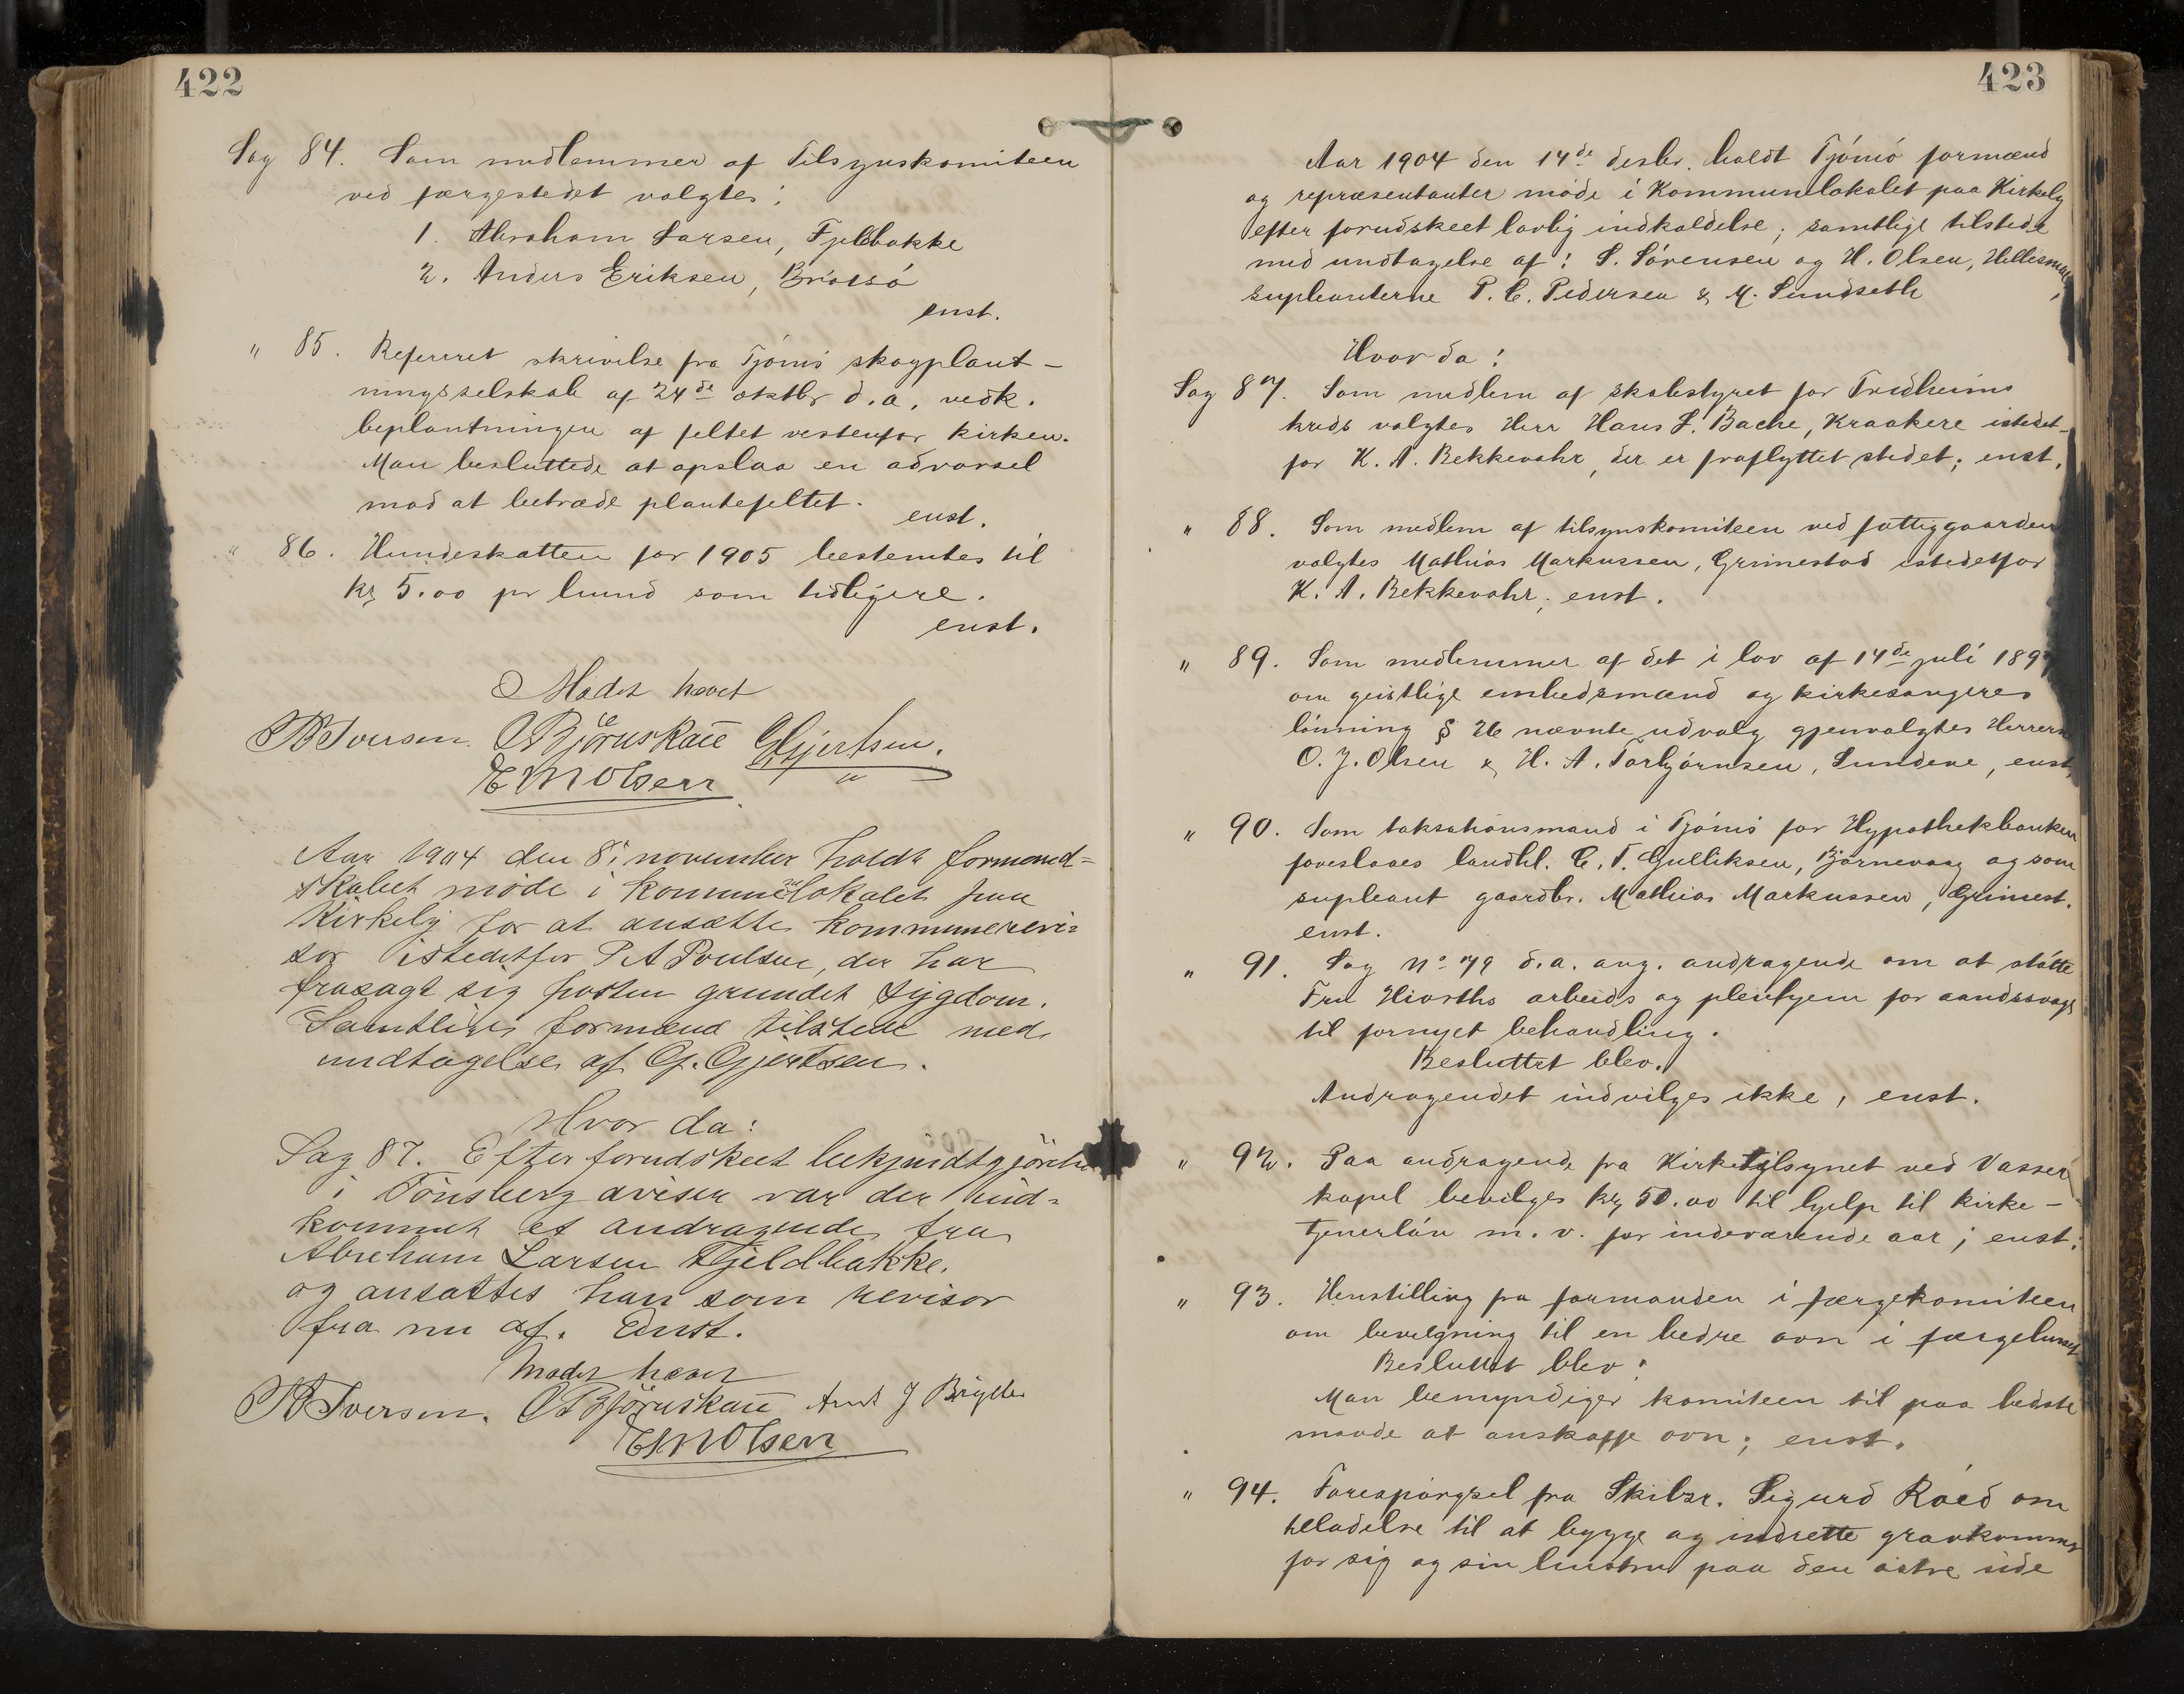 422
Sag 84. Som medlemmer af Tilsynskomiteen
ved færgestedet valgtes:
1. Abraham Larsen, Fjeldbakke
2. Anders Eriksen, Brøtsø
enst.
" 85. Refereret skrivelse fra Tjømø skogplant-
ningsselskab af 24de oktbr d.a. vedk.
beplantningen af feltet vestenfor kirken.
Man besluttede at opslaa en advarsel
mod at betræde plantefeltet.
enst.
" 86. Hundeskatten for 1905 bestemtes til
kr 5.00 pr hund som tidligere.
enst.
Mødet hævet
B Iversen. O Bjørnskau G Gjertsen.
E M Olsen
Aar 1904 den 8. november holdt formand-
skabet møde i kommunelokalet paa
Kirkely for at ansætte kommunerevi-
sor istedetfor P A Poulsen, der har
frasagt sig posten grundet sygdom.
Samtlige formænd tilstede med
undtagelse af G. Gjertsen.
Hvor da:
Sag 87. Efter forudskeet bekjendtgjørelse
i Tønsberg aviser var der ind-
kommet et andragende fra
Abraham Larsen Fjeldbakke.
og ansattes han som revisor
fra nu af. Enst.
Mødet hævet
B Iversen. O Bjørnskau Arnt J Bryde
E M Olsen
423
Aar 1904 den 14de desbr. holdt Tjømø formænd
og repræsentanter møde i Kommunelokalet paa Kirkely
efter forudskeet lovlig indkaldelse; samtlige tilstede
med undtagelse af: S. Sørensen og H. Olsen,
supleanterne P. C. Pedersen & M. Sundseth
Hvor da:
Sag 87. Som medlem af skolestyret for Fredheims
kreds valgtes Herr Hans L. Bache, Kraakere istedet-
for K. A. Bekkevahr, der er fraflyttet stedet; enst.
" 88. Som medlem af tilsynskomiteen ved fattiggaarden
valgtes Mathias Markussen, Grimestad istedetfor
K. A. Bekkevahr; enst.
" 89. Som medlemmer af det i lov af 14de juli 189
om geistlige embedsmænd og kirkesangeres
lønning § 26 nævnte udvalg gjenvalgtes Herrerne
O. J. Olsen & H. A. Torbjørnsen, Sundene, enst.
" 90. Som taksationsmand i Tjømø for Hypothekbanken
foreslaaes landhl. C. F. Gulliksen, Bjørnevaag og som
supleant gaardbr. Mathias Markussen, Grimest.
enst.
" 91. Sag No 79 d.a. ang. andragende om at støtte
Fru Hiorths arbeids og pleiehjem for aandssvage
til fornyet behandling.
Besluttet blev.
Andragendet indvilges ikke, enst.
" 92. Paa andragende fra Kirketilsynet ved Vasser
kapel bevilges kr 50.00 til hjelp til kirke-
tjenerløn m. v. for indeværende aar; enst.
" 93. Henstilling fra formanden i færgekomiteen
om bevilgning til en bedre ovn i færgehuset
Besluttet blev:
Man bemyndiger komiteen til paa bedste
maade at anskaffe ovn; enst.
" 94. Forespørgsel fra Skibsr. Sigurd Røed om
tilladelse til at bygge og indrette gravkammer
for sig og sin hustru paa den østre side